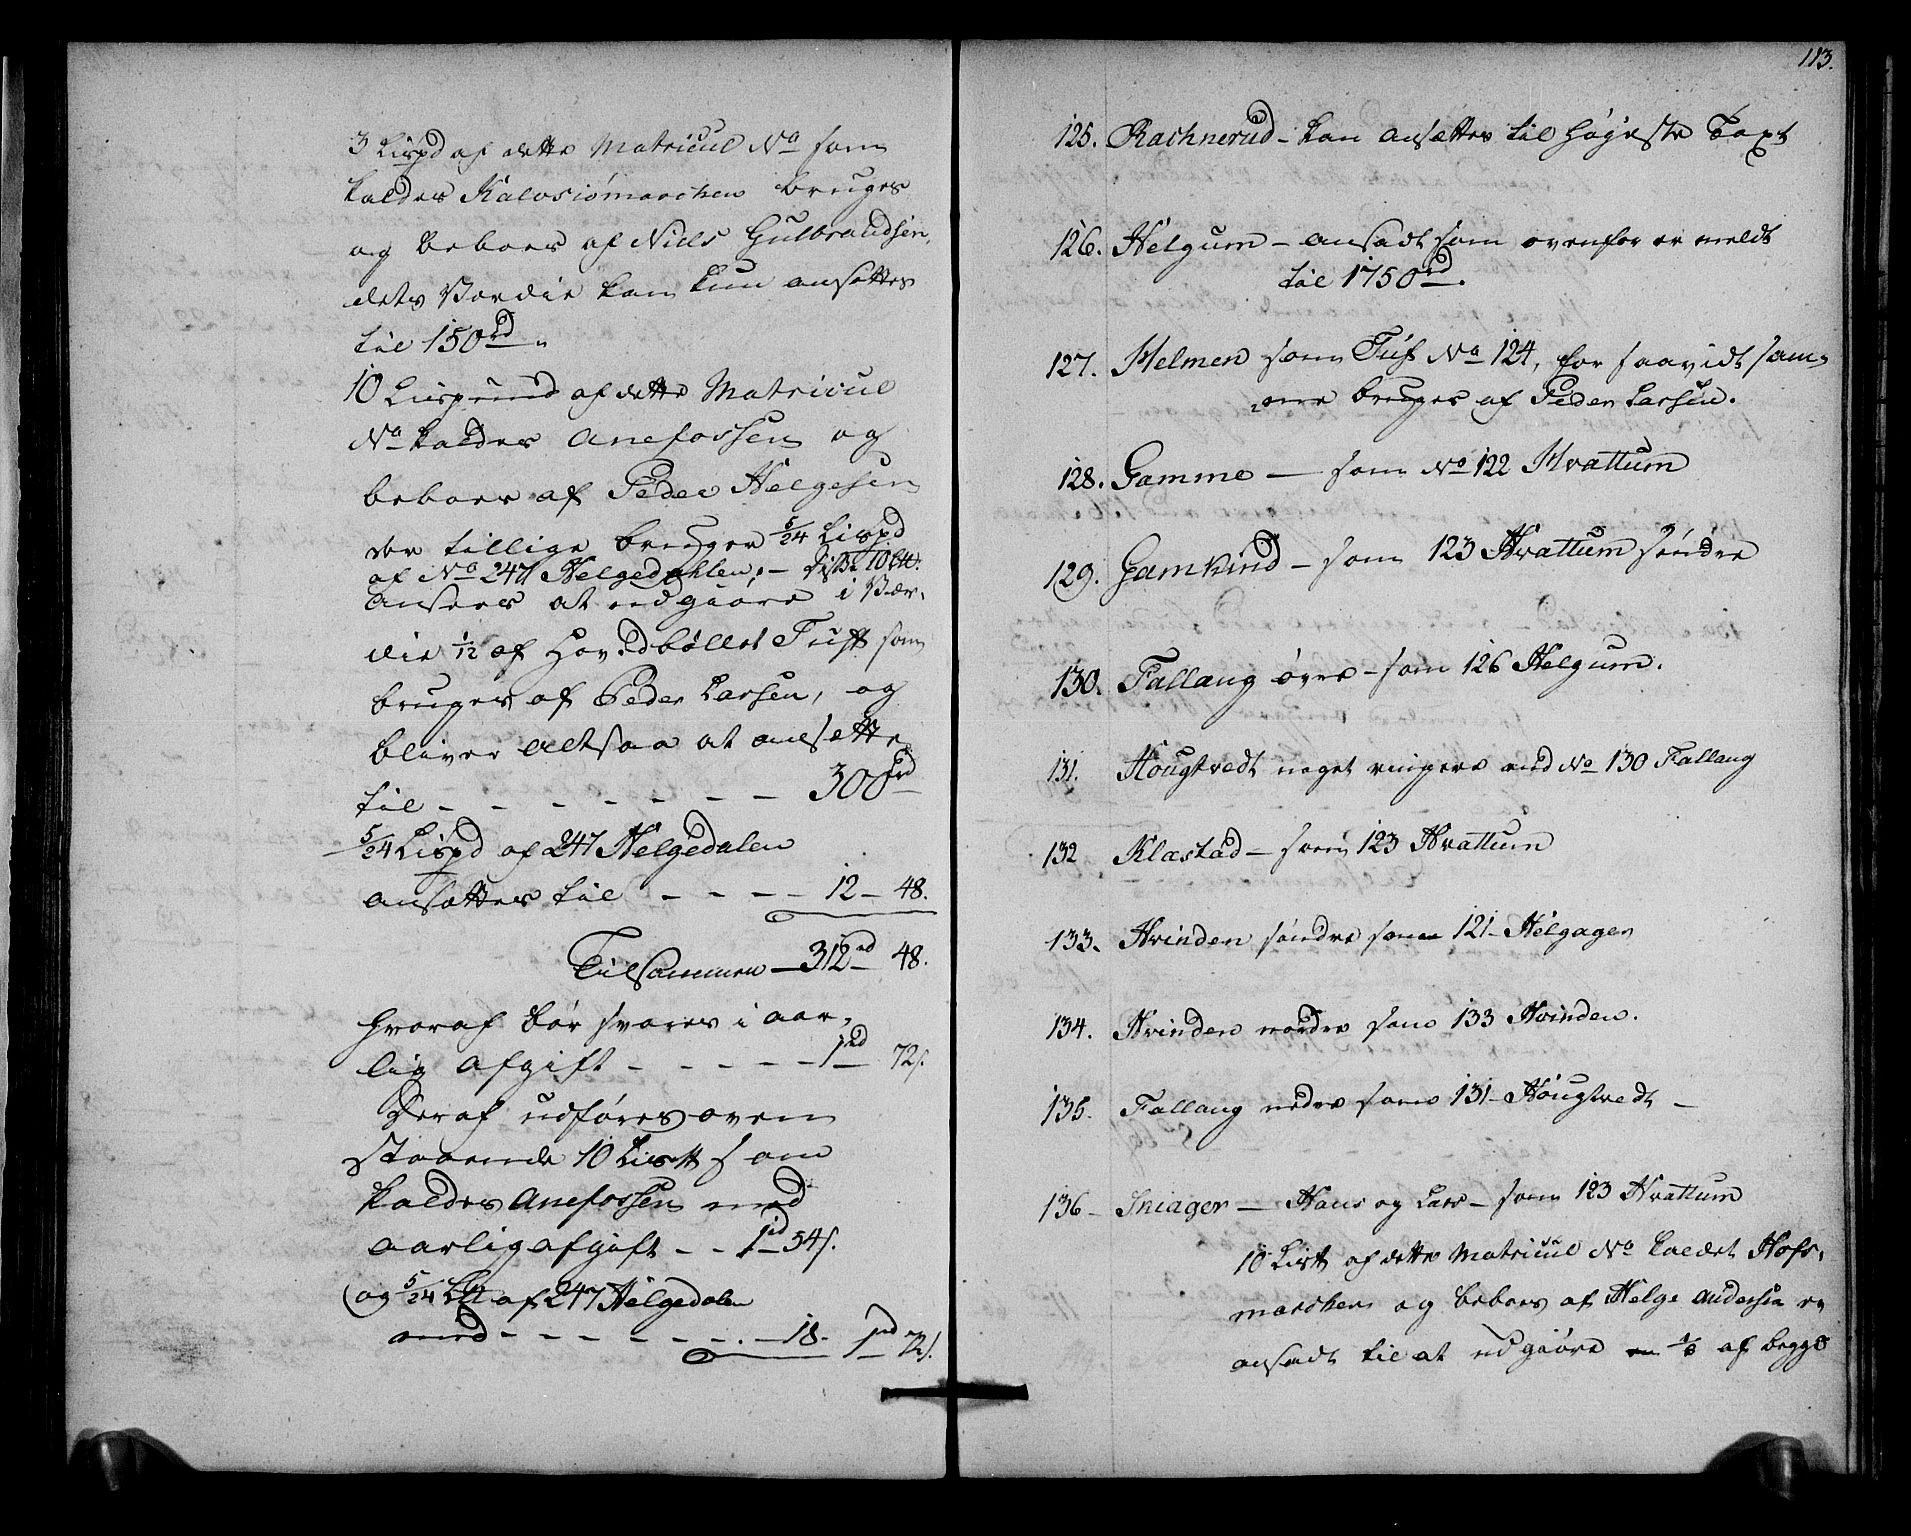 3 Lispd af dette Matricul No som
kaldes Kalvsiømarchen bruges
og beboes af Niels Gulbrandsen,
dets Værdie kan kun ansættes
til 150rd.
10 Lispund af dette Matricul
No kaldes Anefossen og
beboes af Peder Helgesen
der tillige bruger 5/24 Lispd
af No 247 Helgedahlen. –
ansees at udgiøre i Vær-
die 1/12 af Hovedbøllet Tuft som
bruges af Peder Larsen, og
bliver altsaa at ansætte
til – – – – – – – 300rd
5/24 Lispd af 247 Helgedalen
ansættes til – – – – 12 – 48.
Tilsammen – 312rd 48.
hvoraf bør svares i aar-
lig afgift – – – – – 1rd 72s.
Deraf udføres oven
staaende 10 Lis℔ som
kaldes Anefossen med
aarlig afgift – – 1rd 54s.
og 5/24 L℔ af 247 Helgedalen
med – – – – – – – . – 18. 1rd 72s.
113.
125. Rachnerud – kan ansættes til høyeste Taxt
126. Helgum – ansadt som ovenfor er meldt
til 1750rd.
127. Melmen som Tuft No 124, for saavidt sam-
me bruges af Peder Larsen.
128. Gamme – som No 122 Hvattum
129. Gamkind – som 123 Hvattum søndre
130. Fallang øvre – som 126 Helgum.
131. Hougtvedt noget ringere end No 130 Fallang
132 Klæstad – som 123 Hvattum
133. Hvinden søndre som 121 – Helgager
134. Hvinden nordre som 133 Hvinden.
135. Fallang nedre som 131 – Hougtvedt –
136 – Sniager – Hans og Lars – som 123 Hvattum
10 Lis℔ af dette Matricul No kaldet Hofs-
marchen og beboes af Helge Andersen er
ansadt til at udgiøre en 1/8 af begge